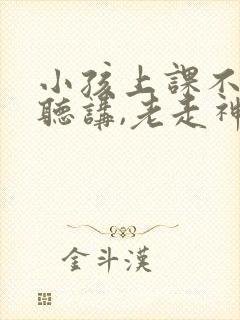 小孩上課不
聽講,老走神
金斗漢